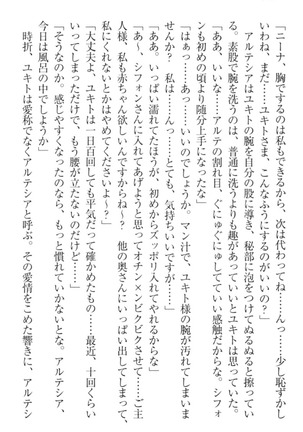 「ニーナ、胸でするのは私もできるから、次は代わってね
いわね、まだ……ユキトさま、こんなふうにするのがいいの？」
アルテシアはユキトの腕を自分の股に導き、秘部に泡をつけてぬるぬると擦ってい
る。素股で腕を洗うのは、普通に洗うよりも趣があっていいとユキトは思っていた。
「ああ、いいな……アルテの割れ目、ぐにゅぐにゅしてていい感触だからな。シフォ
ンも初めの頃より随分上手になったな」
「はぁっ……あっ……いいのでしょうか。マン汁で、ユキト様の腕が汚れてしま
せんか？　私は……んっ……とても、気持ちいいですが……」
「ああ。いっぱい濡れてたほうが、初めからズッポリ入れてやれるからな」
「ああ、シフォンさんに入れてあげようと思ってオチン×ンビクビクさせて……ご主
人様、私も赤ちゃん欲しいんですからね～？　他の奥さんにいっぱい出してしまって、
私にくれないとかはやめてくださいよ～？」
「大丈夫よ、ユキトは一日百回しても平気だって確かめたもの……最近、十回くらい
でまってしただけで、もう腰が立たないのだけど……」
「そうなのか。感じやすくなったのなら、もっと慣れていかないとな。アルテシア、
今日は風呂の中でしようか」
時折、ユキトは愛称でなくアルテシアと呼ぶ。その愛情をこめた響きに、アルテシ